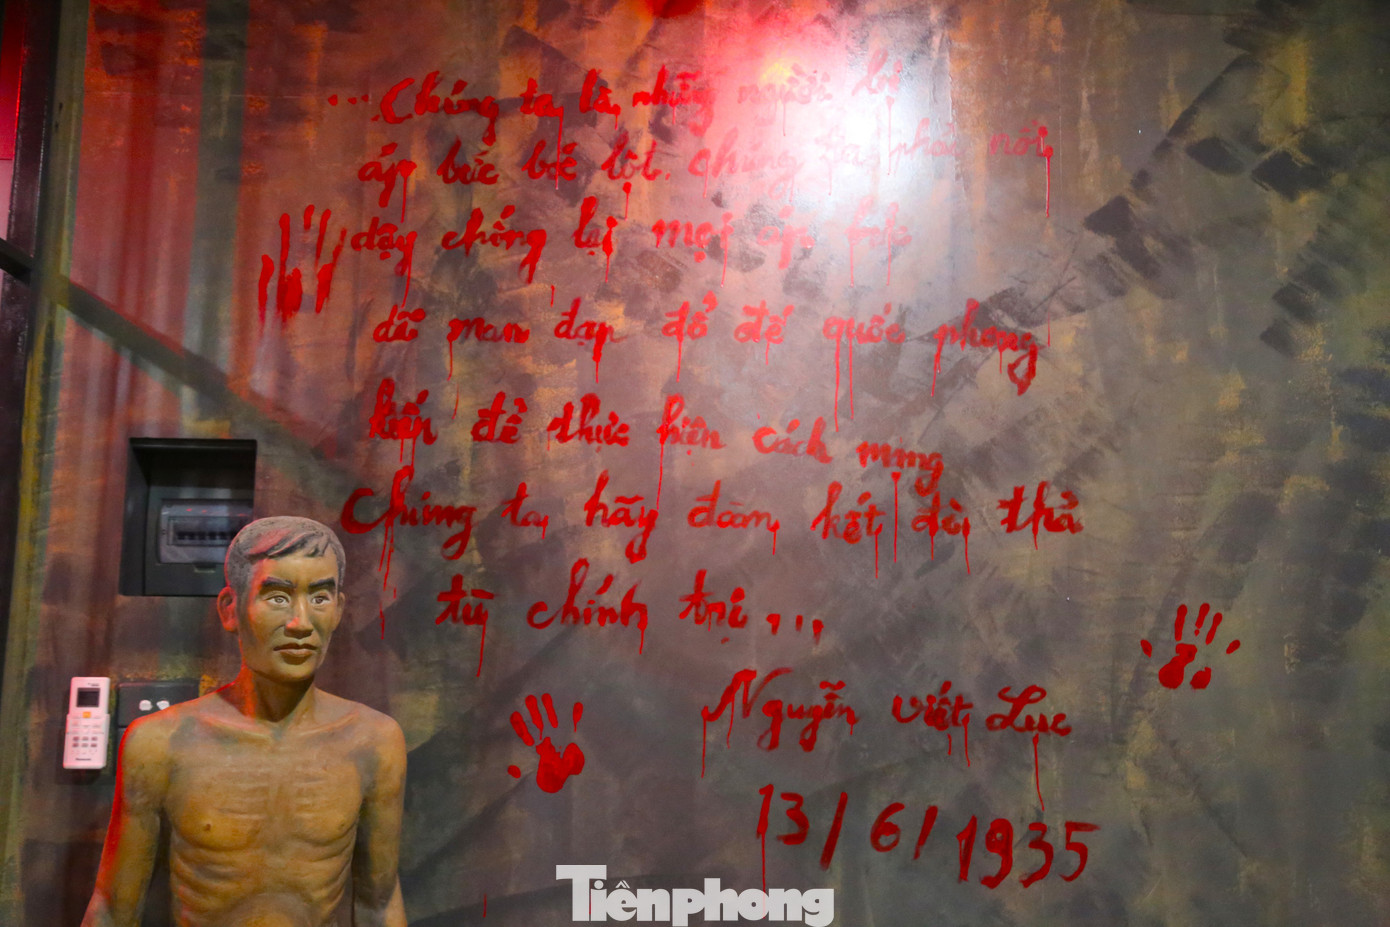 ...Chúng ta là những người bị
áp bức bóc lột. chúng ta phải nổi
dậy chống lại mọi áp bức
dã man đạp đổ đế quốc phong
kiến để thực hiện cách mng
Chúng ta hãy đoàn kết đòi thả
tù chính trị...
Nguyễn viết Lục
13/6/1935
Tiềnphong